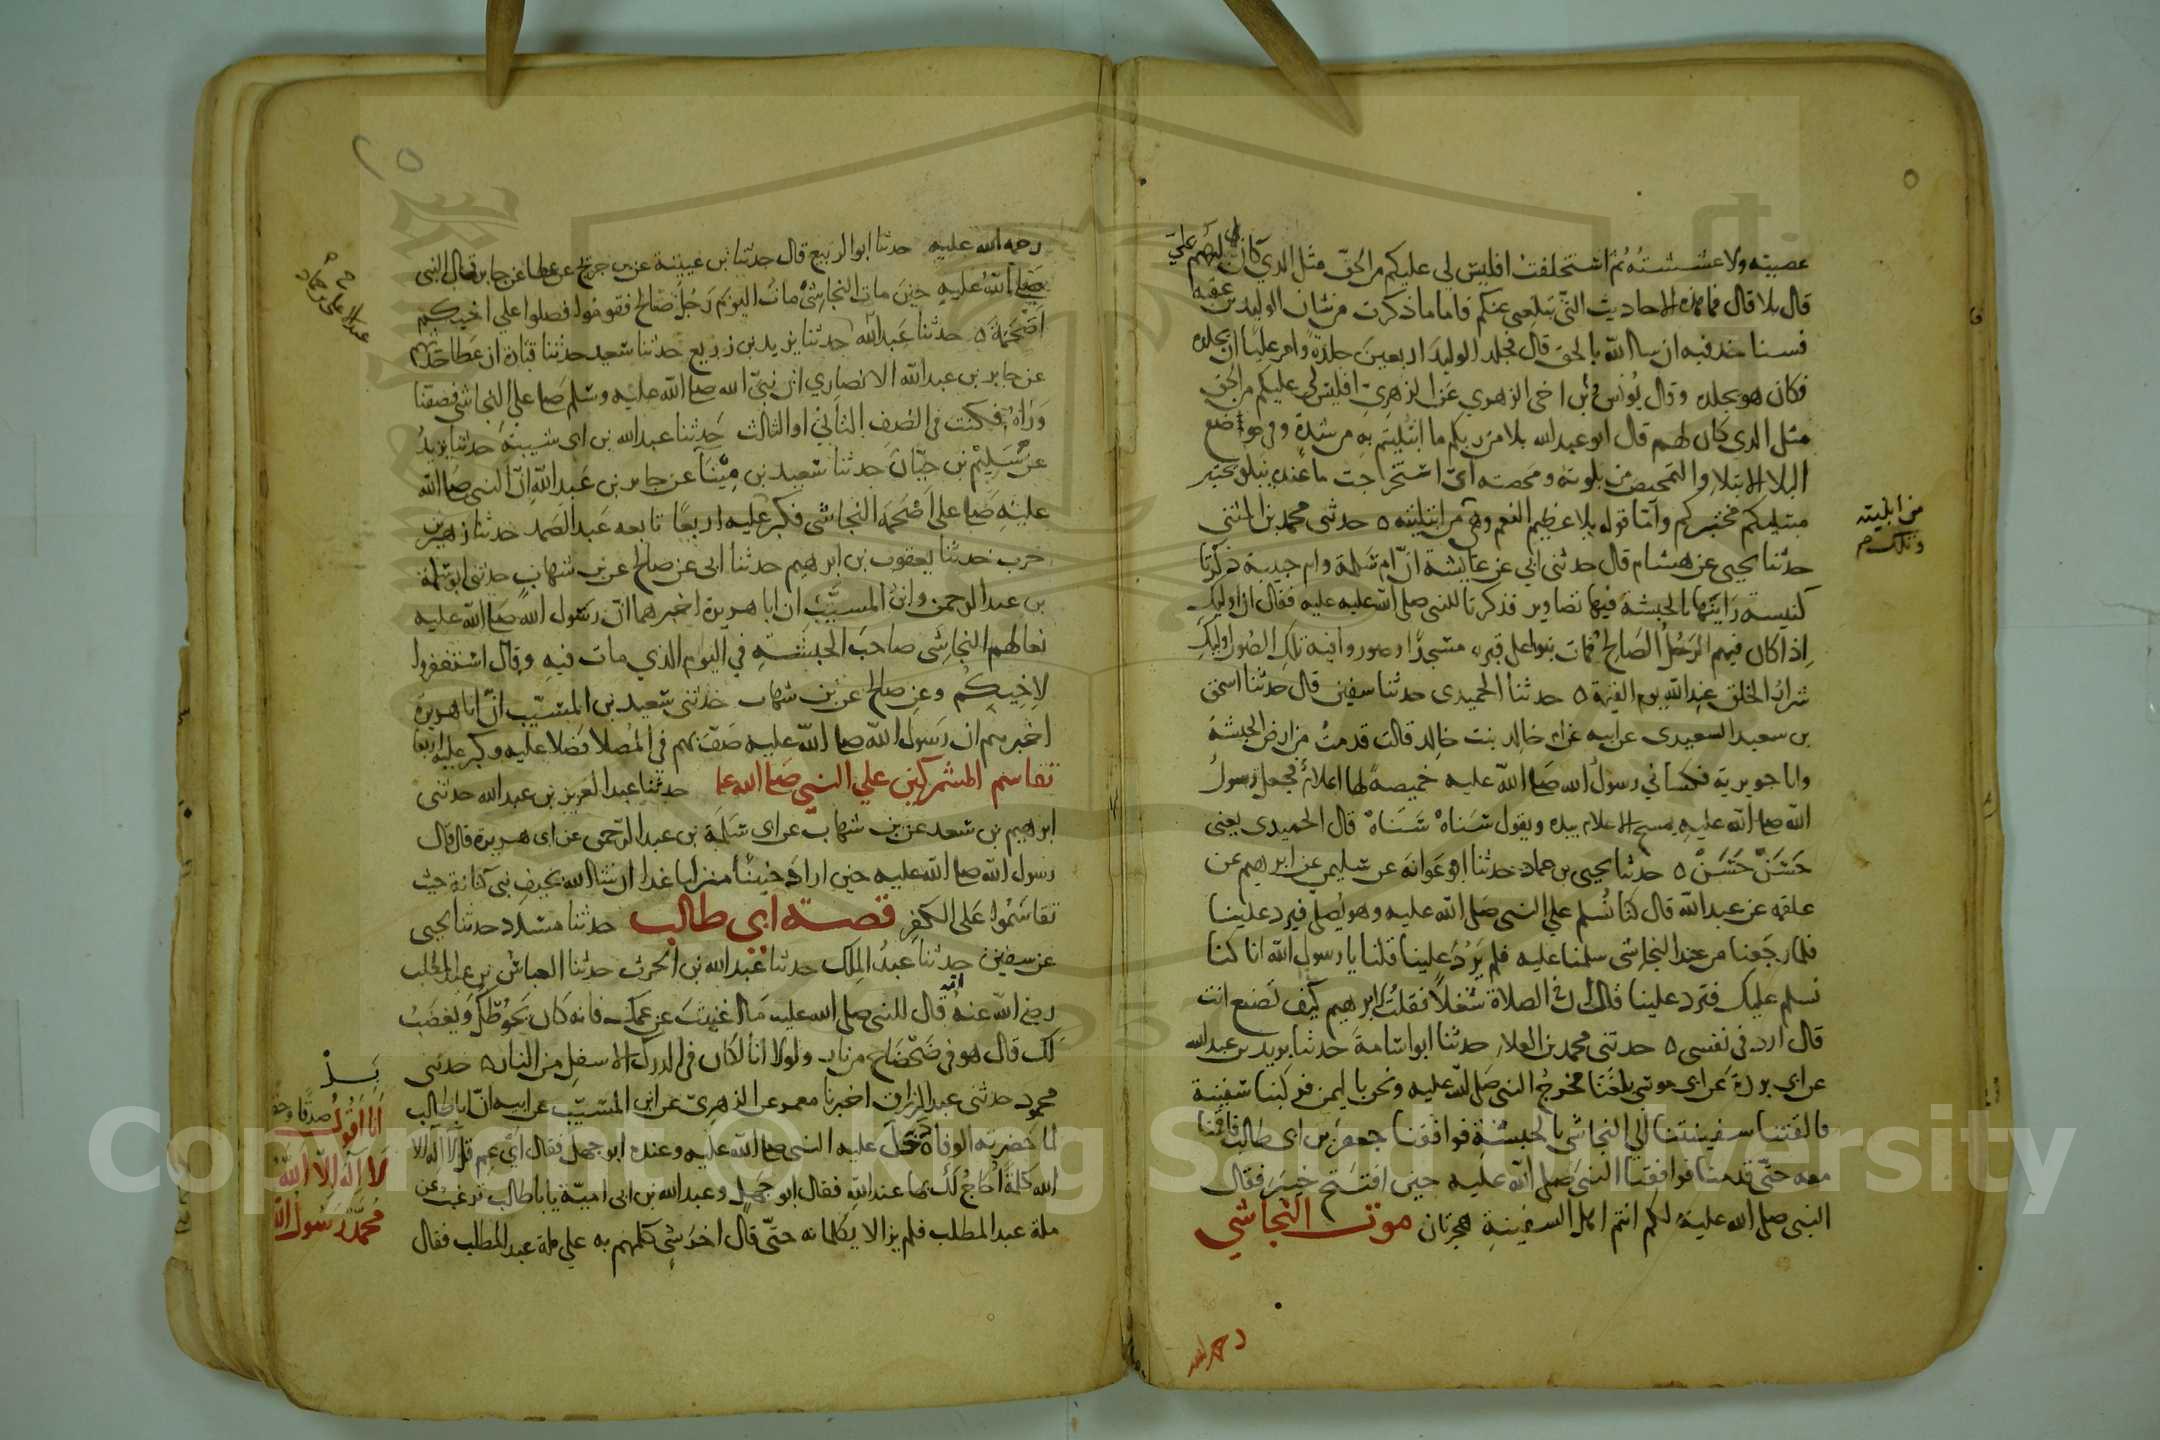 عصيته ولا غششته ثم استخلفت افليس لي عليكم من الحق مثل الذي كان لهم علي
قال بلا قال فما هذه الاحاديث التي تبلغني عنكم فاما ما ذكرت من شان الوليد بن عقبه
فسناخذ فيه ان سا الله بالحق قال فجلد الوليد اربعين جلدة وامر عليا ان يجلده
فكان هو يجلده وقال يونس وبن اخي الزهري عن الزهري افليس لي عليكم من الحق
مثل الذي كان لهم قال ابو عبد الله بلا من ربكم ما ابتليتم به من شدة وفي موضع
البلا الابتلا والتمحيص من بلوته ومحصته اي استخراجت ما عنده يبلو يختبر
مبتليكم مختبركم واما قوله بلا عظيم النعم وهي من ابتليته حدثني محمد بن المثنى
من ابليته
وتلك م
حدثنا يحيى عن هشام قال حدثني ابي عن عايشة ان ام سلمة وام حبيبة ذكرتا
كنيسة راينها بالحبشة فيها تصاوير فذكرتا للنبي صلى الله عليه فقال ان اوليك
اذا كان فيهم الرجل الصالح فمات بنوا على قبره مسجدا وصوروا فيه تلك الصور اوليك
شرار الخلق عند الله يوم القيمة حدثنا الحميدي حدثنا سفين قال حدثنا اسحق
بن سعيد السعيدي عن ابيه عن ام خالد بنت خالد قالت قدمت من ارض الحبشة
وانا جويرية فكساني رسول الله صلى الله عليه خميصة لها اعلام فجعل رسول
الله صلى الله عليه يمسح الاعلام بيده ويقول سناه سناه قال الحميدي يعني
حسن حسن حدثنا يحيى بن حماد حدثنا ابو عوانة عن سليمن عن ابرهيم عن
علقمه عن عبد الله قال كنا نسلم علي النبي صلى الله عليه وهو يصلي فيرد علينا
فلما رجعنا من عند النجاشي سلمنا عليه فلم يرد علينا قلنا يا رسول الله انا كنا
نسلم عليك فترد علينا قال ان في الصلاة شغلا فقلت لابرهيم كيف تصنع انت
قال ارد في نفسي حدثني محمد بن العلا حدثنا ابو اسامة حدثنا بريد بن عبد الله
عن ابي بردة عن ابي موسي بلغنا مخرج النبي صلى الله عليه ونحن باليمن فركبنا سفينة
فالقتنا سفينتنا الي النجاشي بالحبشة فوافقنا جعفر بن ابي طالب فاقمنا
معه حتى قدمنا فوافقنا النبي صلى الله عليه حين افتتح خيبر فقال
النبي صلى الله عليه لكم انتم اهل السفينة هجرتان موت النجاشي
رحمه الله
رحمه الله عليه حدثنا ابو الربيع قال حدثنا بن عيينة عن بن جريج عن عطا عن جابر قال النبي
صلى الله عليه حين مات النجاشي مات اليوم رجل صالح فقوموا فصلوا علي اخيكم
اصحمة حدثنا عبد الله حدثنا يزيد بن زريع حدثنا سعيد حدثنا قتادة ان عطا حدثهم
عبد الاعلى بن حماد
عن جابر بن عبد الله الانصاري ان نبي الله صلى الله عليه وسلم صلى على النجاشي فصفنا
وراه فكنت في الصف الثاني او الثالث حدثنا عبد الله بن ابي شيبة حدثنا يزيد
عن سليم بن حيان حدثنا سعيد بن مينا عن جابر بن عبد الله ان النبي صلى الله
عليه صلى على اصحمة النجاشي فكبر عليه اربعا تابعه عبد الصمد حدثنا زهير بن
حرب حدثنا يعقوب بن ابرهيم حدثنا ابي عن صالح عن بن شهاب حدثني ابو سلمة
بن عبد الرحمن وابن المسيب ان ابا هريرة اخبرهما ان رسول الله صلى الله عليه
نعا لهم النجاشي صاحب الحبشة في اليوم الذي مات فيه وقال استغفروا
لاخيكم وعن صالح عن بن شهاب حدثني سعيد بن المسيب ان ابا هريرة
اخبرهم ان رسول الله صلى الله عليه صف بهم في المصلا فصلا عليه وكبر عليه اربعا
تقاسم المشركين علي النبي صلى الله حدثنا عبد العزيز بن عبد الله حدثني
ابرهيم بن سعد عن بن شهاب عن ابي سلمة بن عبد الرحمن عن ابي هريرة قال قال
رسول الله صلى الله عليه حين اراد حنينا منزلنا غدا ان شا الله بخيف بني كنانة حيث
تقاسموا على الكفر قصة ابي طالب حدثنا مسدد حدثنا يحيى
عن سفين حدثنا عبد الملك حدثنا عبد الله بن الحرث حدثنا العباس بن عبد المطلب
رضي الله عنه انه قال للنبي صلى الله عليه ما اغنيت عن عمك فانه كان يحوطك ويغضب
لك قال هو في ضحضاح من نار ولولا انا لكان في الدرك الاسفل من النار حدثني
محمود حدثني عبد الرزاق اخبرنا معمر عن الزهري عن ابن المسيب عن ابيه ان ابا طالب
لما حضرته الوفاة دخل عليه النبي صلى الله عليه وعنده ابو جهل فقال اي عم قل لا اله الا
الله كلمة احاج لك بها عند الله فقال ابو جهل وعبد الله بن ابي امية يا ابا طالب ترغب عن
ملة عبد المطلب فلم يزالا يكلمانه حتى قال اخر شي كلمهم به علي ملة عبد المطلب فقال
انا اقول صدقا وحقا
لا اله الا الله
محمد رسول الله
Copyright © King Saud University